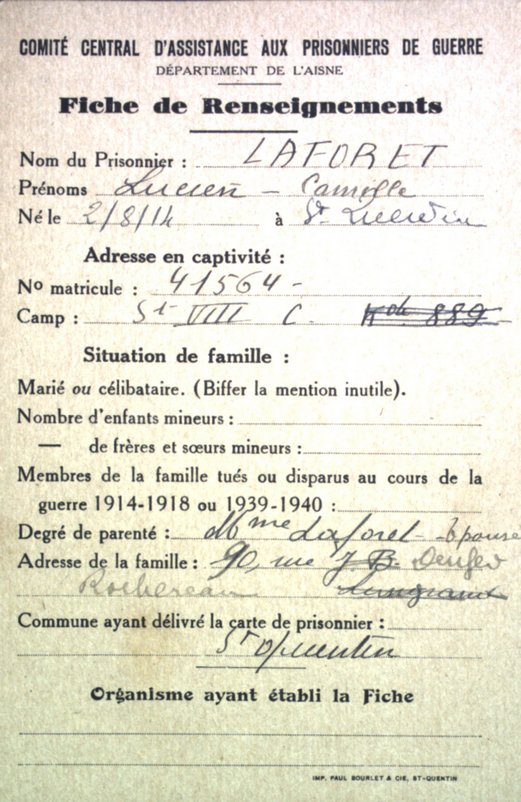 COMITÉ CENTRAL D'ASSISTANCE AUX PRISONNIERS DE GUERRE
DÉPARTEMENT DE L'AISNE
Fiche de Renseignements
Nom du Prisonnier : LAFORET
Prénoms Lucien - Camille
Né le 2/8/14 à St Quentin
Adresse en captivité :
No matricule : 41564 -
Camp : St VIII C. Kdo 889
Situation de famille :
Marié ou célibataire. (Biffer la mention inutile).
Nombre d'enfants mineurs :
— de frères et sœurs mineurs :
Membres de la famille tués ou disparus au cours de la
guerre 1914-1918 ou 1939-1940 :
Degré de parenté : Mme Laforet - Epouse
Adresse de la famille : 90, rue J. B. Denfer
Rochereau
Commune ayant délivré la carte de prisonnier :
St Quentin
Organisme ayant établi la Fiche
IMP. PAUL BOURLET & CIE, ST-QUENTIN